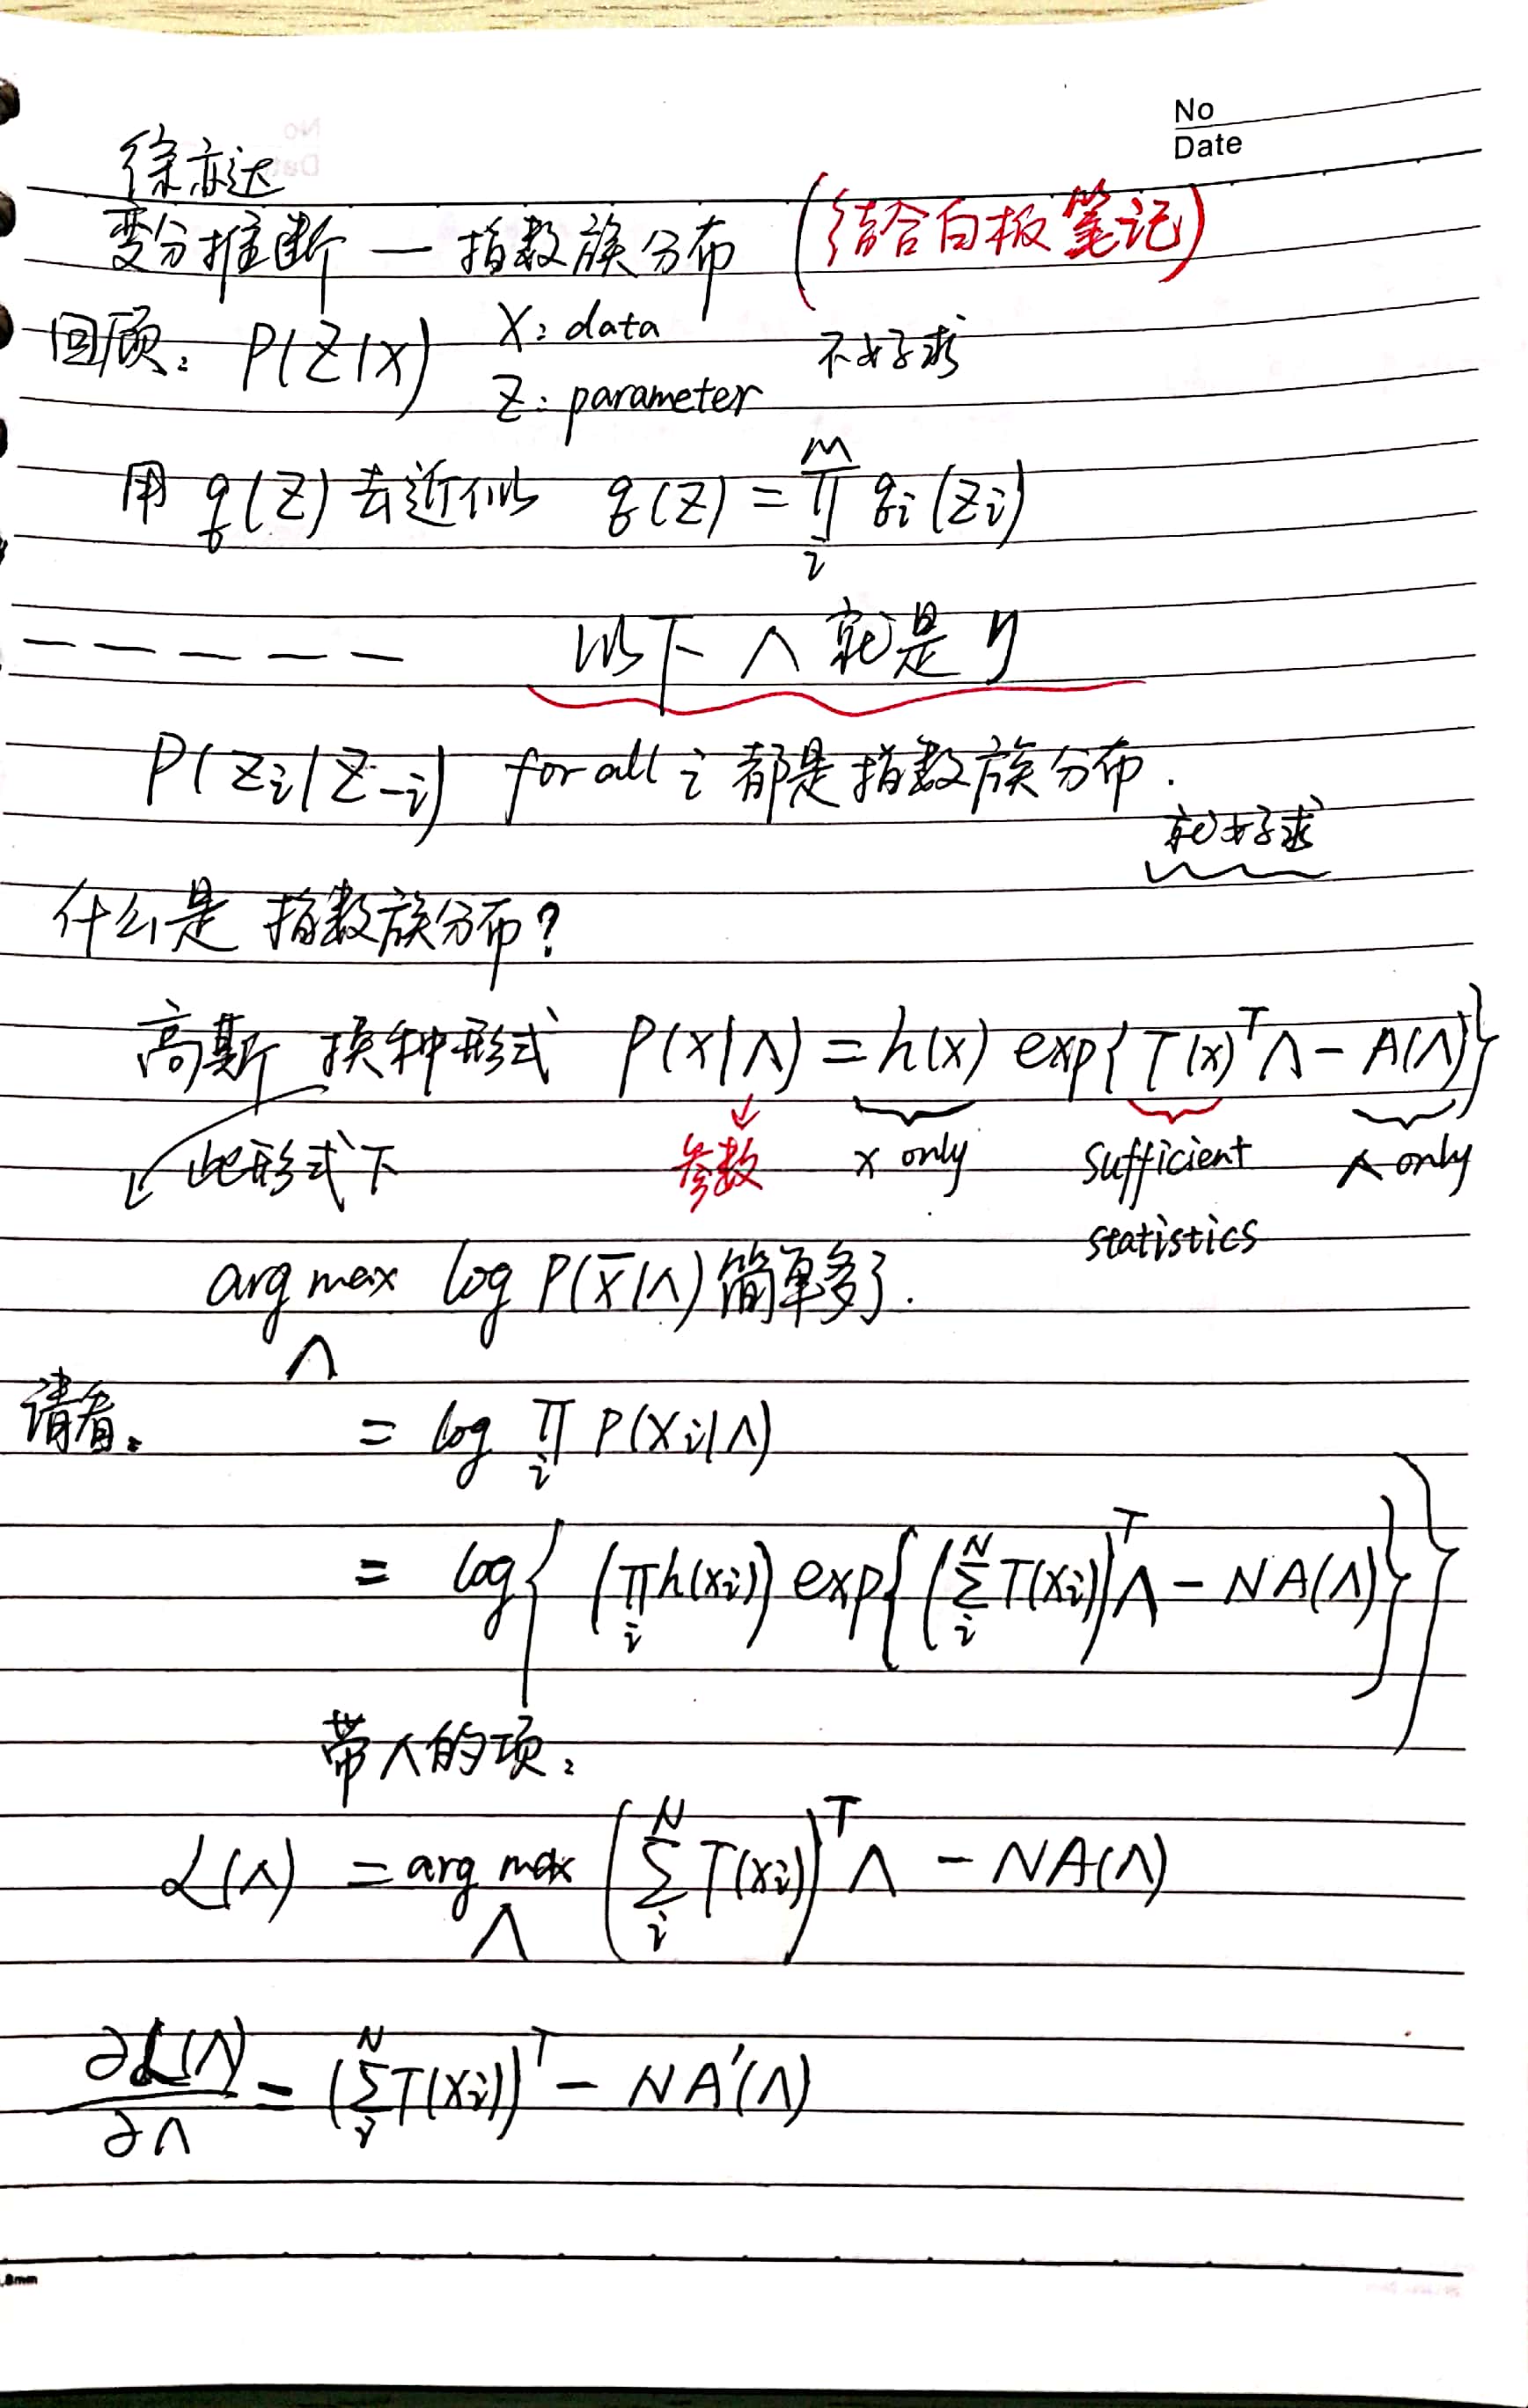 No
Date
徐亦达
变分推断 — 指数族分布 (结合白板笔记)
回顾: P(Z|X) X: data 不好求
Z: parameter
用 q(Z) 去近似 q(Z) = ∏_i^M q_i(Z_i)
— — — — — 以下 Λ 就是 η
P(Z_i|Z_{-i}) for all i 都是指数族分布.
就好求
什么是 指数族分布?
高斯 换种形式 P(X|Λ) = h(x) exp{T(x)^T Λ - A(Λ)}
此形式下 参数 x only sufficient statistics Λ only
arg max_Λ log P(X̄|Λ) 简单多了.
请看: = log ∏_i P(X_i|Λ)
= log{ (∏_i h(x_i)) exp{ (∑_i^N T(x_i))^T Λ - NA(Λ) } }
带Λ的项:
L(Λ) = arg max_Λ (∑_i^N T(x_i))^T Λ - NA(Λ)
∂L(Λ)/∂Λ = (∑_i^N T(x_i))^T - NA'(Λ)
.8mm